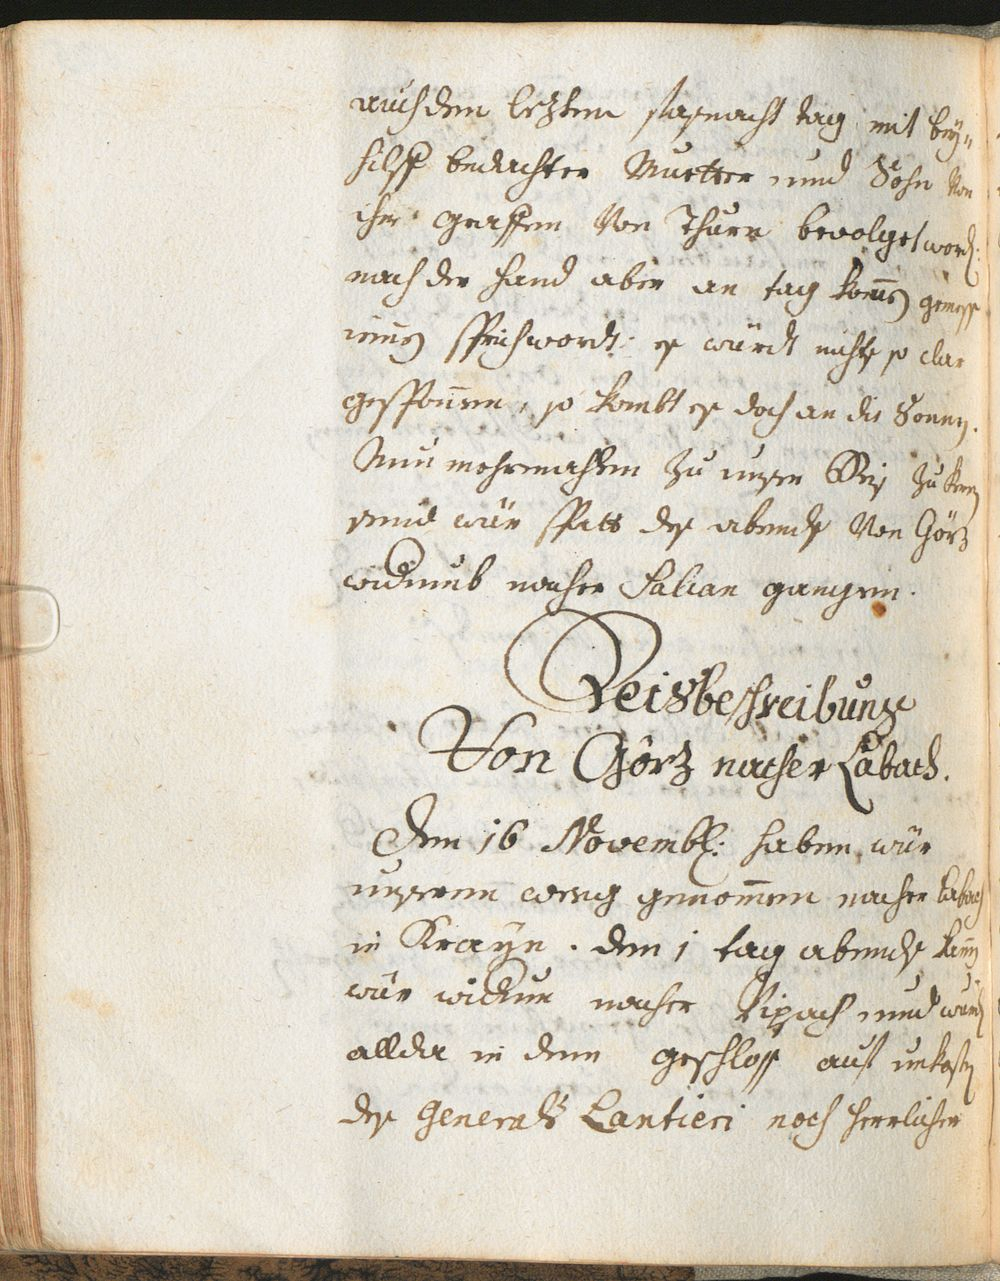 auch dem letzten fasnacht tag mit bey„
hilff bedachter Muetter und Sohn Von
ihr graffen Von Thurn bevolget word:
nach der hand aber an tag komen gemess
eines sprichwordts: es würdt nichts so clar
gesponnen, so kombt es doch an die Sonnen.
Nun mehrmahlen zu unser Reis zu keren
seind wür spatt des abends Von Görz
widerumb nacher Salcan gangen.
Reisbeschreibung
Von Görz nacher Labach.
Den 16 Novemb: haben wür
unseren weeg genommen nacher Labach
in Krayn. den 1 tag abends kamen
wür widerum nacher Vipach und wurden
allda in dem geschloss auf unkosten
des Generals Lantieri noch herrlicher